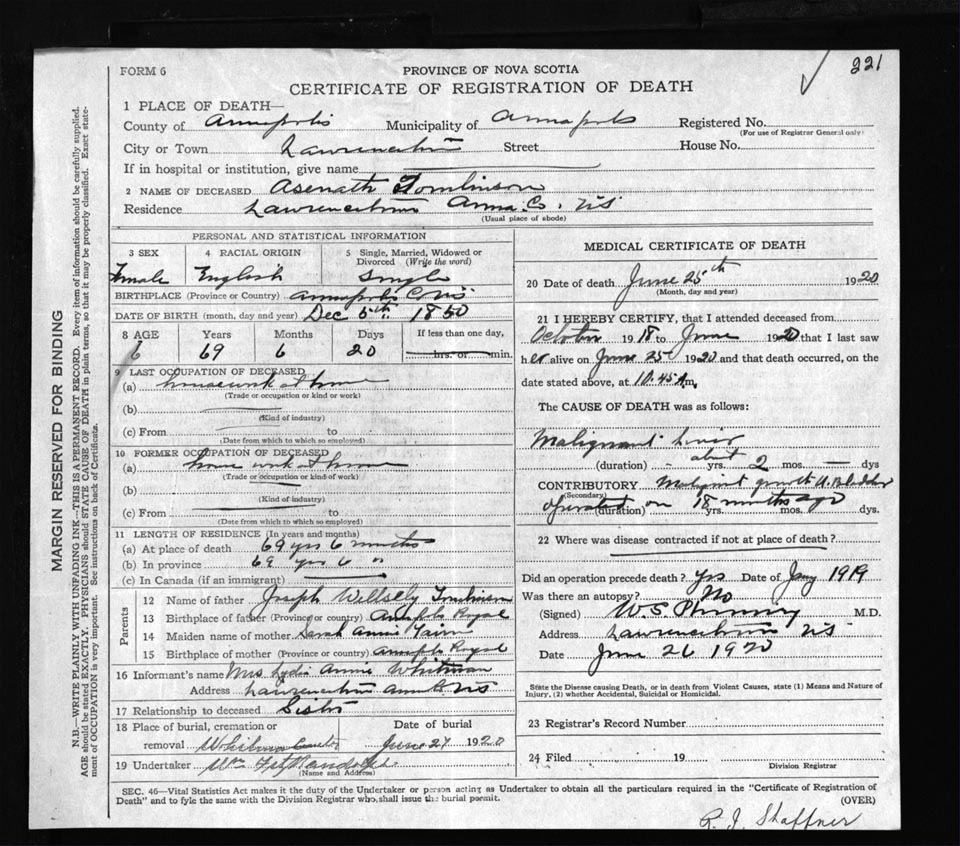 221
FORM 6
PROVINCE OF NOVA SCOTIA
CERTIFICATE OF REGISTRATION OF DEATH
1 PLACE OF DEATH—
County of Annapolis Municipality of Annapolis Registered No.
(For use of Registrar General only)
City or Town Lawrencetown Street House No.
If in hospital or institution, give name
2 NAME OF DECEASED Asenath Tomlinson
Residence Lawrencetown Anna. Co. NS
(Usual place of abode)
PERSONAL AND STATISTICAL INFORMATION
3 SEX 4 RACIAL ORIGIN 5 Single, Married, Widowed or Divorced (Write the word)
Female English Single
BIRTHPLACE (Province or Country) Annapolis Co NS
DATE OF BIRTH (month, day and year) Dec 5th 1850
8 AGE Years Months Days If less than one day,
6 69 6 20 hrs. or min.
9 LAST OCCUPATION OF DECEASED
(a) housework at home
(Trade or occupation or kind or work)
(b)
(Kind of industry)
(c) From to
(Date from which to which so employed)
10 FORMER OCCUPATION OF DECEASED
(a) house work at home
(Trade or occupation or kind of work)
(b)
(Kind of industry)
(c) From to
(Date from which to which so employed)
11 LENGTH OF RESIDENCE (In years and months)
(a) At place of death 69 yrs 6 months
(b) In province 69 yrs 6 "
(c) In Canada (if an immigrant)
Parents
12 Name of father Joseph Tomlinson
13 Birthplace of father (Province or country) Annapolis Royal
14 Maiden name of mother Sarah Annie
15 Birthplace of mother (Province or country) Annapolis Royal
16 Informant's name Mrs Lydia Annie Whitman
Address Lawrencetown Anna Co NS
17 Relationship to deceased Sister
18 Place of burial, cremation or Date of burial
removal Whitman June 27 1920
19 Undertaker Wm
(Name and Address)
MEDICAL CERTIFICATE OF DEATH
20 Date of death June 25th 1920
(Month, day and year)
21 I HEREBY CERTIFY, that I attended deceased from
October 1918 to June 1920 that I last saw
her alive on June 25th 1920 and that death occurred, on the
date stated above, at 10.45 A m.
The CAUSE OF DEATH was as follows:
Malignant Liver
(duration) about yrs. 2 mos. — dys
CONTRIBUTORY Malignant growth Bladder
(Secondary)
operated on 18 months ago
(duration) yrs. mos. dys.
22 Where was disease contracted if not at place of death?
Did an operation precede death? Yes Date of Jany 1919
Was there an autopsy? No
(Signed) W.S. Phinney M.D.
Address Lawrencetown NS
Date June 26 1920
State the Disease causing Death, or in death from Violent Causes, state (1) Means and Nature of
Injury, (2) whether Accidental, Suicidal or Homicidal.
23 Registrar's Record Number
24 Filed 19
Division Registrar
SEC. 46—Vital Statistics Act makes it the duty of the Undertaker or person acting as Undertaker to obtain all the particulars required in the "Certificate of Registration of
Death" and to fyle the same with the Division Registrar who shall issue the burial permit.
(OVER)
R. J. Shaffner
MARGIN RESERVED FOR BINDING
N.B.—WRITE PLAINLY WITH UNFADING INK—THIS IS A PERMANENT RECORD. Every item of information should be carefully supplied.
AGE should be stated EXACTLY. PHYSICIANS should STATE CAUSE OF DEATH in plain terms, so that it may be properly classified. Exact state-
ment of OCCUPATION is very important. See instructions on back of Certificate.